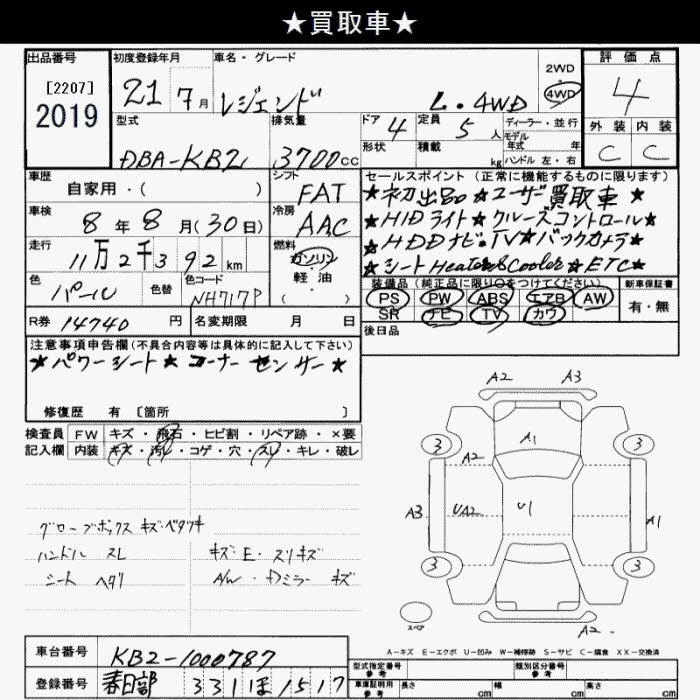 ★買取車★
出品番号 初度登録年月 車名・グレード 2WD・4WD 評価点
[2207]
2019 21 7月 レジェンド 4WD 4
型式 排気量 ドア 4 定員 5人 ディーラー・並行 外装 内装
DBA-KB2 3700cc 形状 積載 kg モデル年式 年 ハンドル 左・右 C C
車歴 シフト セールスポイント (正常に機能するものに限ります)
自家用・( ) FAT ★初出品★ユーザー買取車★
車検 冷房 ★HIDライト★クルーズコントロール★
8年8月(30日) AAC ★HDDナビ・TV★バックカメラ★
走行 燃料 ★シートHeater&Cooler★ETC★
11万2千392km ガソリン 軽・油 ・( )
色 色替 色コード 装備品(純正品に限り○をつけてください) 新車保証書
パール NH717P PS PW ABS エアB AW 有・無
SR ナビ TV カワ
R券 14740円 名変期限 月 日 後日品
注意事項申告欄(不具合内容等は具体的に記入して下さい)
★パワーシート★コーナーセンサー★
修復歴 有 〔箇所 〕
検査員 FW キズ・飛石・ヒビ割・リペア跡・×要
記入欄 内装 キズ・汚レ・コゲ・穴・スレ・キレ・破レ
グローブボックス キズ・ベタツキ
ハンドル スレ キズ・E・スリキズ
シート ヘタリ A/W・ドミラー キズ
A2 A3
3 A1 3
A2
A3 UA2 U1 A1
3 3
スペア A2
A-キズ E-エクボ U-凹み W-補修跡 S-サビ C-腐食 XX-交換済
車台番号 KB2-1000787 型式指定番号 参考 類別区分番号 参考
登録番号 春日部 331 ほ 1517 車庫証明用 参考 長さ cm 幅 cm 高さ cm